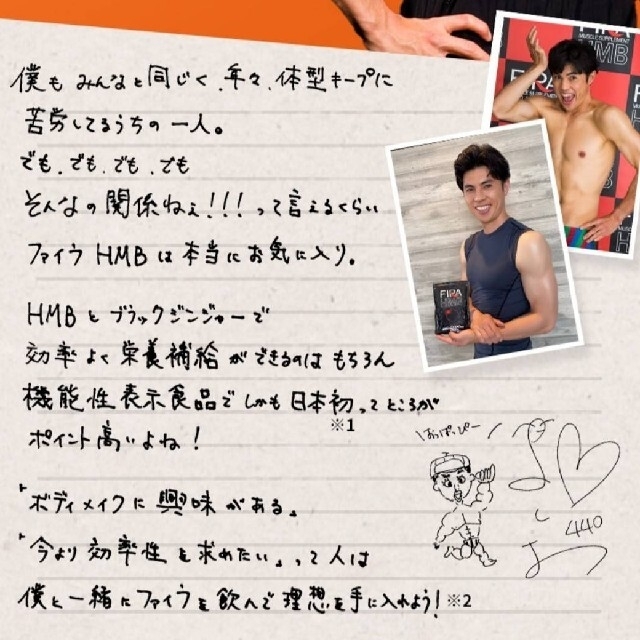 僕も みんなと同じく、年々、体型キープに
苦労してるうちの一人。
でも、でも、でも、でも
そんなの関係ねぇ!!!って言えるくらい
ファイラ HMBは本当にお気に入り。
HMBとブラックジンジャーで
効率よく栄養補給ができるのはもちろん
機能性表示食品でしかも日本初ってところが
※1
ポイント高いよね!
"ボディメイクに興味がある。
"今より効率性を求めたい。って人は
僕と一緒にファイラを飲んで理想を手に入れよう!※2
FIRA
MUSCLE SUPPLEMENT
HMB
FIRA
HMB
\おっぱっぴー/
440